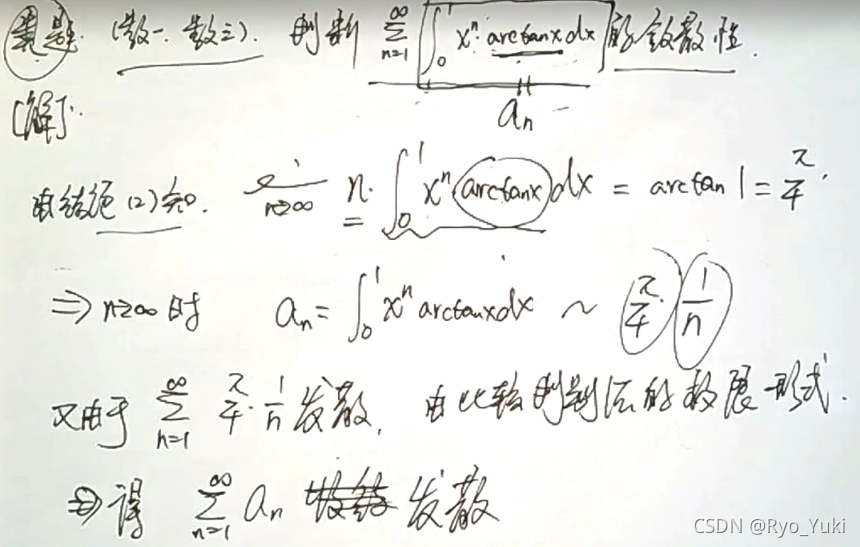 真题. (数一. 数三). 判断 ∑_{n=1}^{∞} ∫_0^1 x^n · arctanx dx 的敛散性.
a_n
[解]:
由结论(2)知. lim_{n→∞} n · ∫_0^1 x^n arctanx dx = arctan 1 = π/4.
⇒ n→∞ 时 a_n = ∫_0^1 x^n arctanx dx ~ π/4 · 1/n
又由于 ∑_{n=1}^{∞} π/4 · 1/n 发散, 由比较判别法的极限形式.
⇒ 得 ∑_{n=1}^{∞} a_n 发散
CSDN @Ryo_Yuki